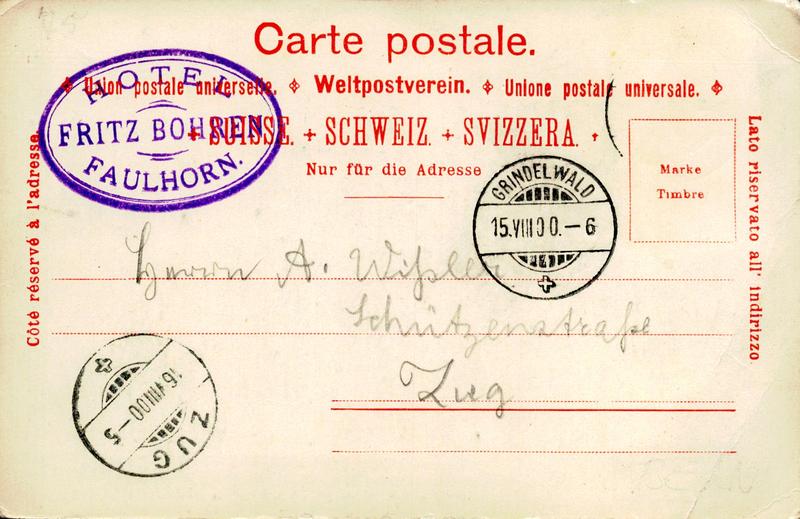 Carte postale.
Union postale universelle. Weltpostverein. Unione postale universale.
SUISSE. + SCHWEIZ. + SVIZZERA.
Nur für die Adresse
HOTEL
FRITZ BOHREN
FAULHORN.
Marke
Timbre
GRINDELWALD
15.VIII 00.-6
Côté réservé à l'adresse.
Lato riservato all' indirizzo
Herrn A. Wißler
Schützenstraße
Zug
16.VIII 00-5
ZUG